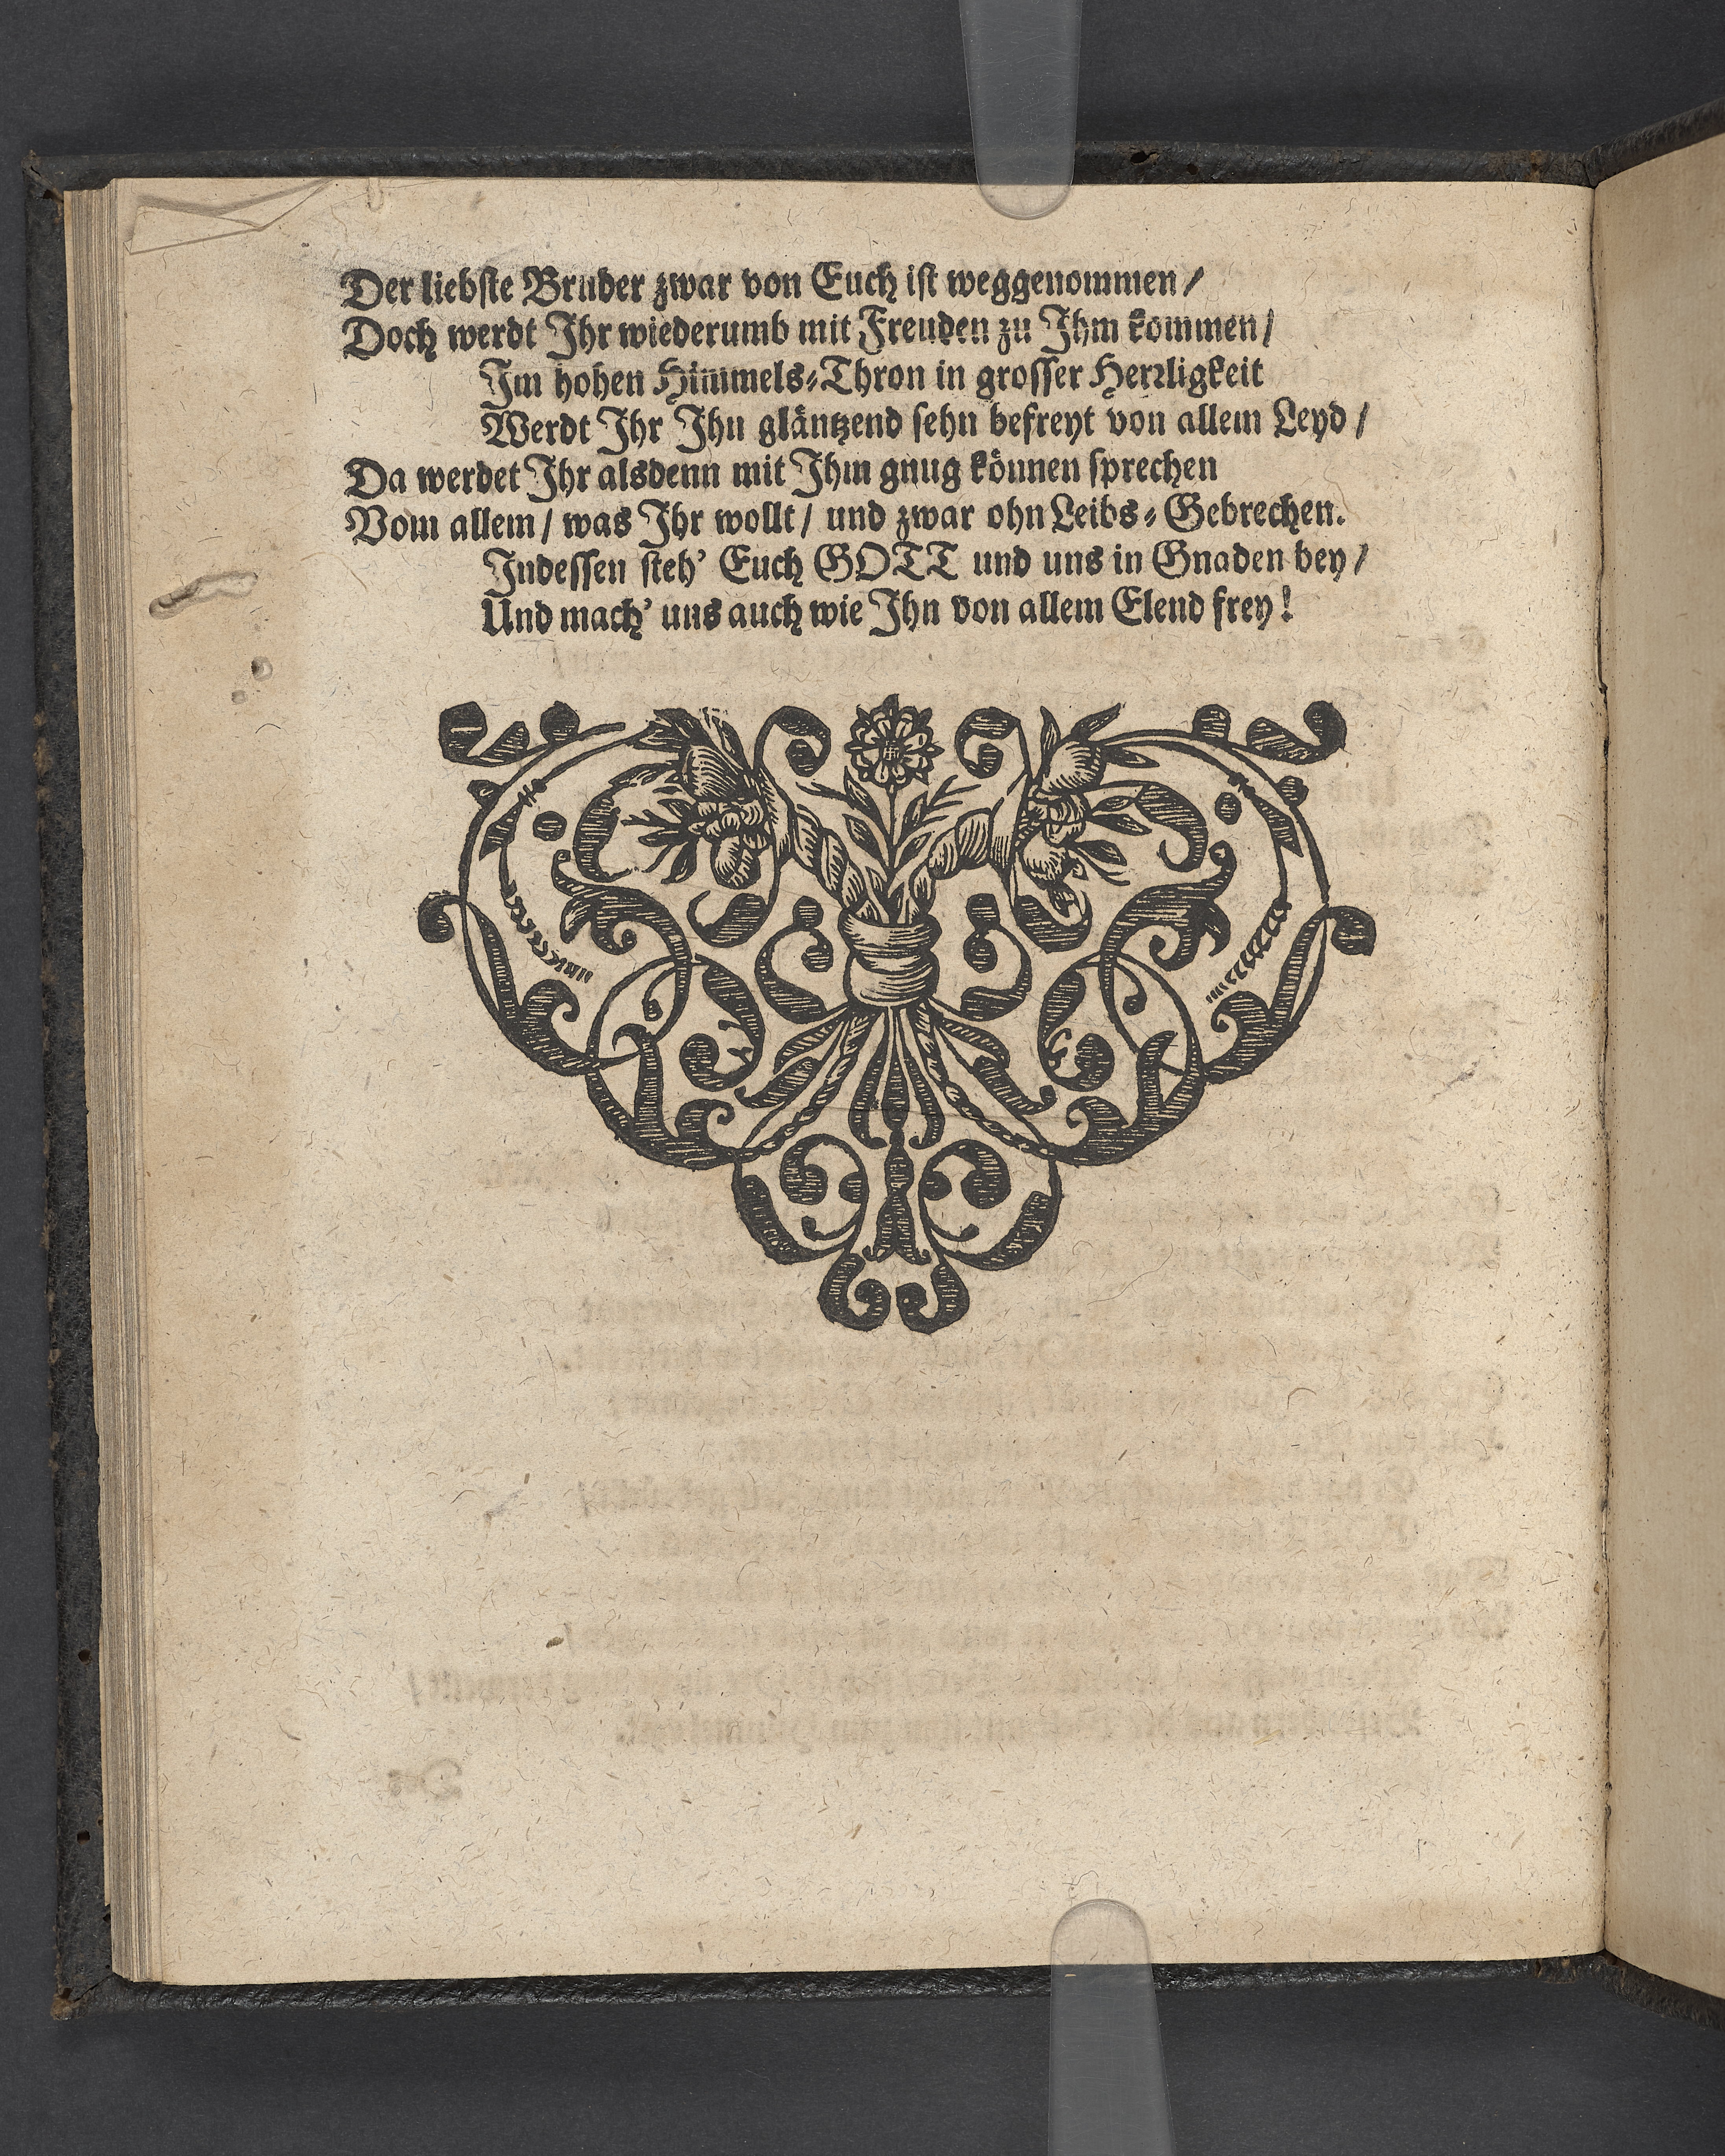 Der liebſte Bruder zwar von Euch iſt weggenommen/
Doch werdt Ihr wiederumb mit Freuden zu Ihm kommen/
Im hohen Him̃mels-Thron in groſſer Herꝛligkeit
Werdt Ihr Ihn gläntzend ſehn befreyt von allem Leyd/
Da werdet Ihr alsdenn mit Ihm gnug können ſprechen
Vom allem/ was Ihr wollt/ und zwar ohn Leibs-Gebrechen.
Indeſſen ſteh' Euch GOTT und uns in Gnaden bey/
Und mach' uns auch wie Ihn von allem Elend frey!